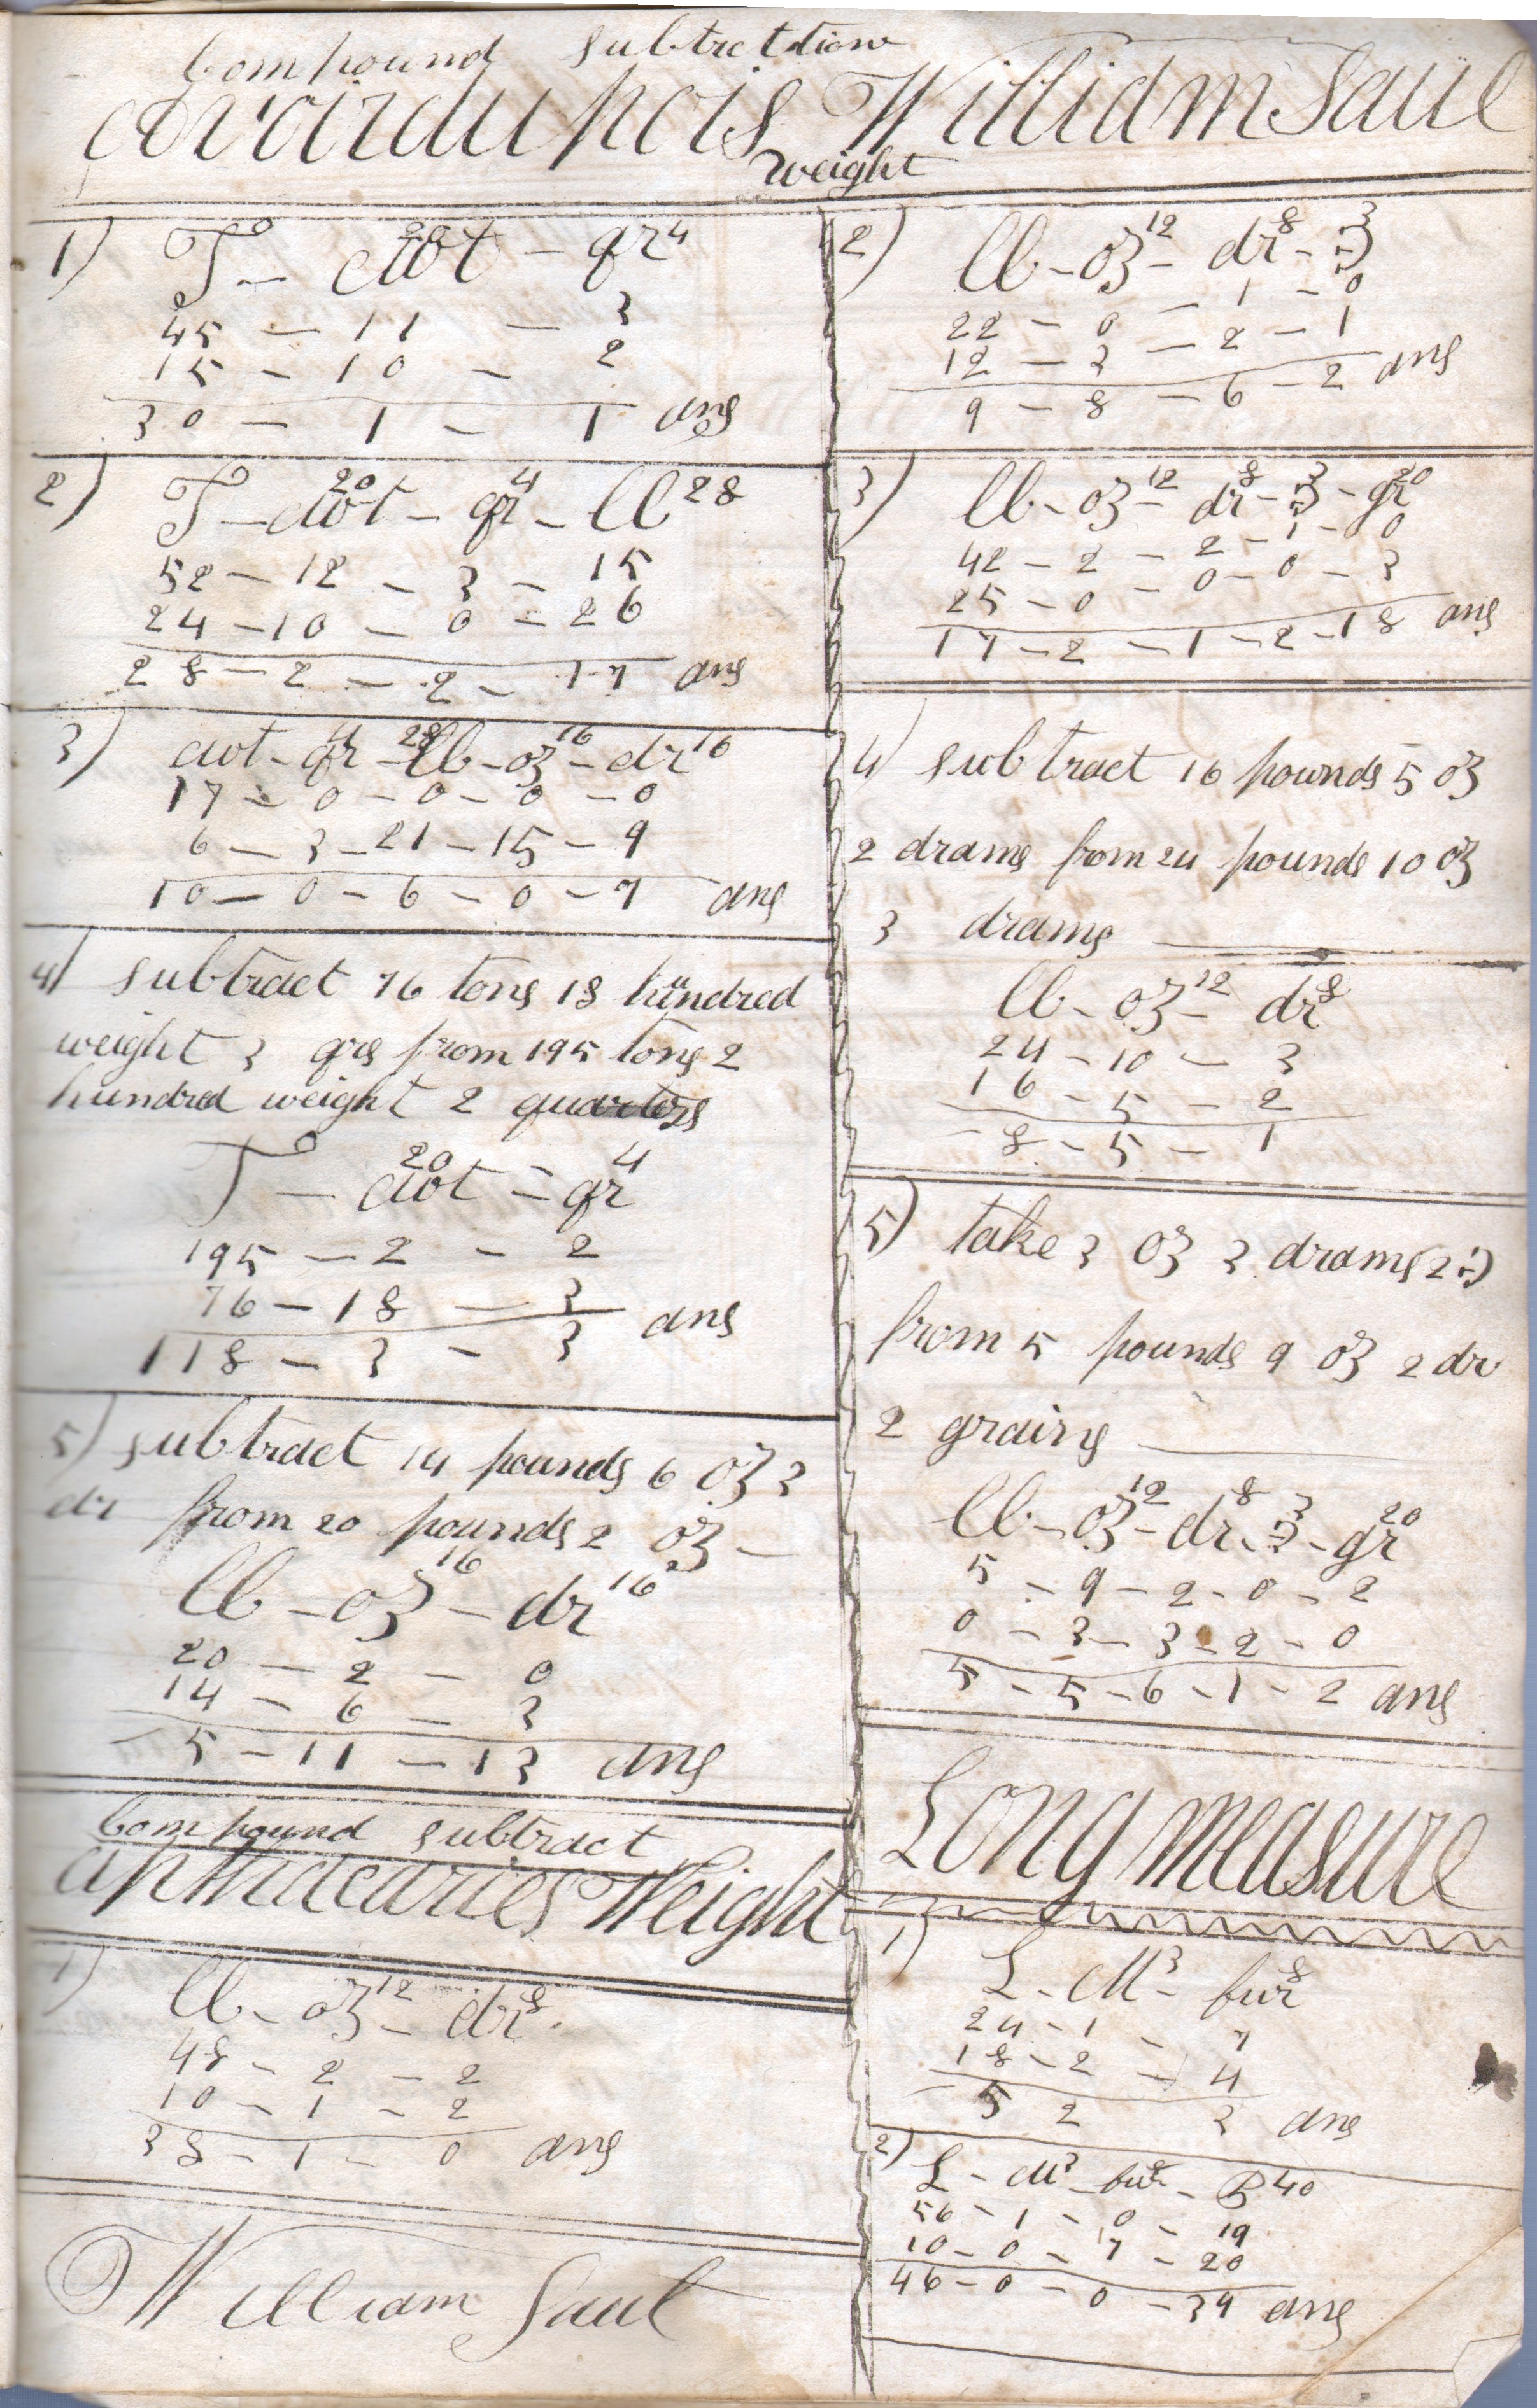 Compound subtrction
avoirdupois William Saul
weight
1) T - cwt 20 - qr 4
45 - 11 - 3
15 - 10 - 2
30 - 1 - 1 ans
2) T - cwt 20 - qr 4 - lb 28
52 - 12 - 3 - 15
24 - 10 - 0 - 26
28 - 2 - 2 - 17 ans
3) cwt - qr 4 - lb 28 - oz 16 - dr 16
17 - 0 - 0 - 0 - 0
6 - 3 - 21 - 15 - 9
10 - 0 - 6 - 0 - 7 ans
4) subtract 76 tons 18 hundred
weight 3 qrs from 195 tons 2
hundred weight 2 quarters
T - cwt 20 - qr 4
195 - 2 - 2
76 - 18 - 3
118 - 3 - 3 ans
5) subtract 14 pounds 6 oz 3
dr from 20 pounds 2 oz -
lb - oz 16 - dr 16
20 - 2 - 0
14 - 6 - 3
5 - 11 - 13 ans
Compound subtract
apthucaries Weight
1) lb - oz 12 - dr 8
48 - 2 - 2
10 - 1 - 2
38 - 1 - 0 ans
William Saul
2) lb - oz 12 - dr 8 - ℈ 3
22 - 0 - 1 - 0
12 - 3 - 2 - 1
9 - 8 - 6 - 2 ans
3) lb - oz 12 - dr 8 - ℈ 3 - gr 20
42 - 2 - 2 - 1 - 0
25 - 0 - 0 - 0 - 3
17 - 2 - 1 - 2 - 18 ans
4 subtract 16 pounds 5 oz
2 drams from 24 pounds 10 oz
3 drams
lb - oz 12 - dr 8
24 - 10 - 3
16 - 5 - 2
8 - 5 - 1
5) take 3 oz 3 drams 2 ℈
from 5 pounds 9 oz 2 dr
2 grains
lb - oz 12 - dr 8 - ℈ 3 - gr 20
5 - 9 - 2 - 0 - 2
0 - 3 - 3 - 2 - 0
5 - 5 - 6 - 1 - 2 ans
Long measure
1) L - M 3 - fur 8
24 - 1 - 7
18 - 2 - 4
5 2 3 ans
2) L - M 3 - fur 8 - P 40
56 - 1 - 0 - 19
10 - 0 - 7 - 20
46 - 0 - 0 - 39 ans